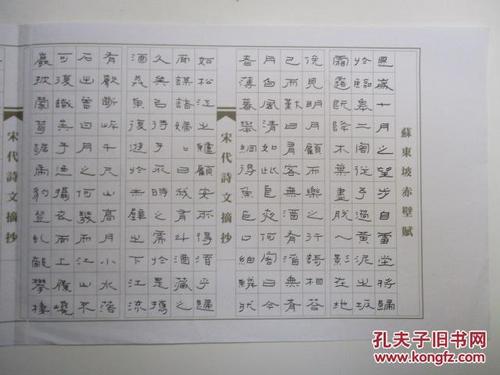 蘇東坡赤壁賦
是歲十月之望步自雪堂將歸
於臨皋二客從予過黃泥之坂
霜露既降木葉盡脫人影在地
仰見明月顧而樂之行歌相答
已而歎曰有客無酒有酒無肴
月白風清如此良夜何客曰今
者薄暮舉網得魚巨口細鱗狀
宋代詩文摘抄
如松江之鱸顧安所得酒乎歸
而謀諸婦婦曰我有斗酒藏之
久矣以待子不時之需於是攜
酒與魚復遊於赤壁之下江流
有聲斷岸千尺山高月小水落
石出曾日月之幾何而江山不
可復識矣予乃攝衣而上履巉
巖披蒙茸踞虎豹登虬龍攀棲
宋代詩文摘抄
孔夫子旧书网
www.kongfz.com